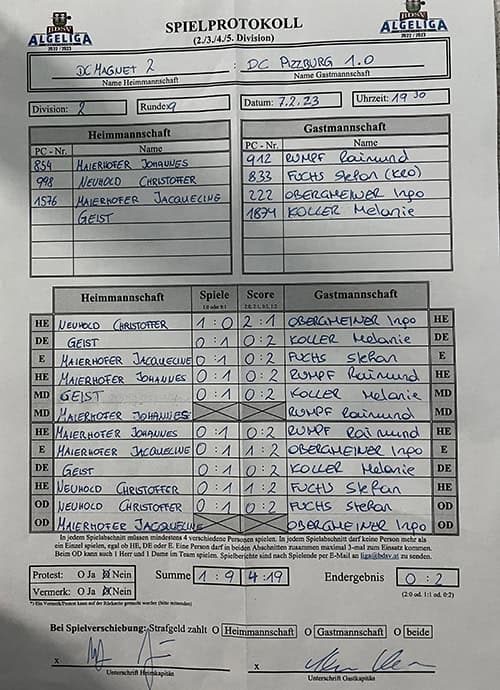 BDSV
ALGELIGA
2022 / 2023
SPIELPROTOKOLL
(2./3./4./5. Division)
BDSV
ALGELIGA
2022 / 2023
DC MAGNET 2 : DC PIZZBURG 1.0
Name Heimmannschaft Name Gastmannschaft
Division: 2 Runde: 9 Datum: 7.2.23 Uhrzeit: 19 30
Heimmannschaft Gastmannschaft
PC - Nr. Name PC - Nr. Name
854 MAIERHOFER JOHANNES 912 RUMPF Raimund
998 NEUHOLD CHRISTOFFER 833 FUCHS Stefan (KRO)
1576 MAIERHOFER JACQUELINE 222 OBERGMEINER Ingo
GEIST 1874 KOLLER Melanie
Heimmannschaft Spiele Score Gastmannschaft
1:0 oder 0:1 2:0, 2:1, 0:2, 1:2
HE NEUHOLD CHRISTOFFER 1 : 0 2 : 1 OBERGMEINER Ingo HE
DE GEIST 0 : 1 0 : 2 KOLLER Melanie DE
E MAIERHOFER JACQUELINE 0 : 1 0 : 2 FUCHS Stefan E
HE MAIERHOFER JOHANNES 0 : 1 0 : 2 RUMPF Raimund HE
MD GEIST 0 : 1 0 : 2 KOLLER Melanie MD
MD MAIERHOFER JOHANNES RUMPF Raimund MD
HE MAIERHOFER JOHANNES 0 : 1 0 : 2 RUMPF Raimund HE
E MAIERHOFER JACQUELINE 0 : 1 1 : 2 OBERGMEINER Ingo E
DE GEIST 0 : 1 0 : 2 KOLLER Melanie DE
HE NEUHOLD CHRISTOFFER 0 : 1 1 : 2 FUCHS Stefan HE
OD NEUHOLD CHRISTOFFER 0 : 1 0 : 2 FUCHS Stefan OD
OD MAIERHOFER JACQUELINE OBERGMEINER Ingo OD
In jedem Spielabschnitt müssen mindestens 4 verschiedene Personen spielen. In jedem Spielabschnitt darf keine Person mehr als
ein Einzel spielen, egal ob HE, DE oder E. Eine Person darf in beiden Abschnitten zusammen maximal 3-mal zum Einsatz kommen.
Beim OD kann auch 1 Herr und 1 Dame im Team spielen. Spielberichte sind nach Spielende per E-Mail an liga@bdsv.at zu senden.
Protest: O Ja Nein Summe 1 : 9 4:19 Endergebnis 0 : 2
Vermerk: O Ja Nein (2:0 od. 1:1 od. 0:2)
*) Ein Vermerk/Protest kann auf der Rückseite gemacht werden (bitte mitsenden)
Bei Spielverschiebung: Strafgeld zahlt O Heimmannschaft O Gastmannschaft O beide
x x
Unterschrift Heimkapitän Unterschrift Gastkapitän